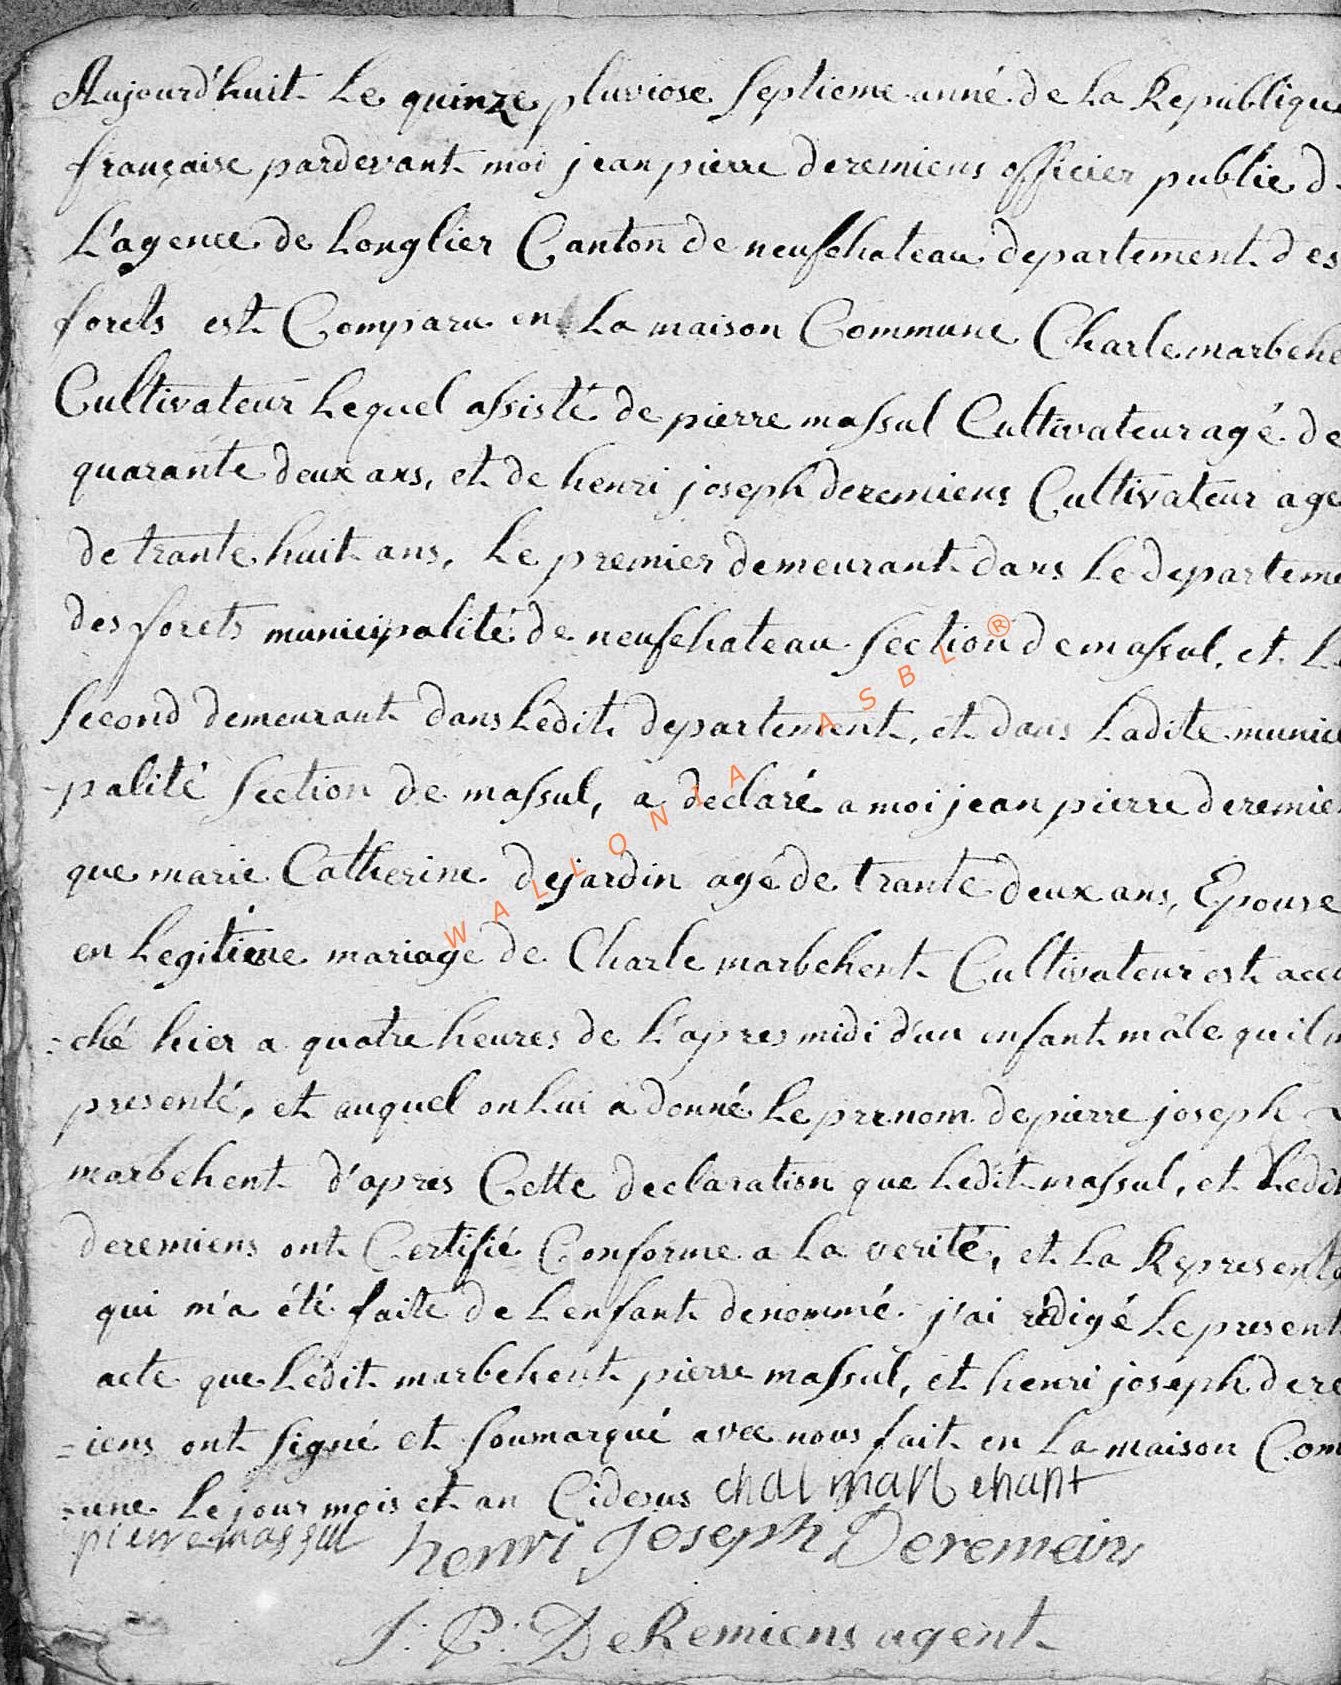 Aujourd'huit Le quinze pluviose septieme anné de La Republique
française pardevant moi jean pierre deremiens officier public d
L'agence de Longlier Canton de neufchateau departement des
forets est Comparu en La maison Commune Charle marbehe
Cultivateur Lequel assisté de pierre massul Cultivateur agé de
quarante deux ans, et de henri joseph deremiens Cultivateur age
de trante huit ans, Le premier demeurant dans Le departeme
des forets municipalité de neufchateau section de massul, et L
second demeurant dans Ledit departement, et dans Ladite munici
-palité section de massul, a declaré a moi jean pierre deremie
que marie Catherine dejardin agé de trante deux ans, Epouse
en Legitime mariage de Charle marbehent Cultivateur est accu
=ché hier a quatre heures de L'apres midi d'un enfant mâle quil m
presenté, et auquel on Lui a donné Le prenom de pierre joseph
marbehent d'apres Cette declaration que Ledit massul, et Ledit
deremiens ont Certifié Conforme a La verité, et La Representa
qui m'a été faite de L'enfant denommé j'ai rédigé Le present
acte que Ledit marbehent pierre massul, et henri joseph dere
=iens ont signé et soumarqué avec nous fait en La maison Com
=une Le jour mois et an Cidesus chal marbehant
pierre massul henri Joseph Deremeins
J: P: DeRemiens agent
WALLONIA ASBL ®